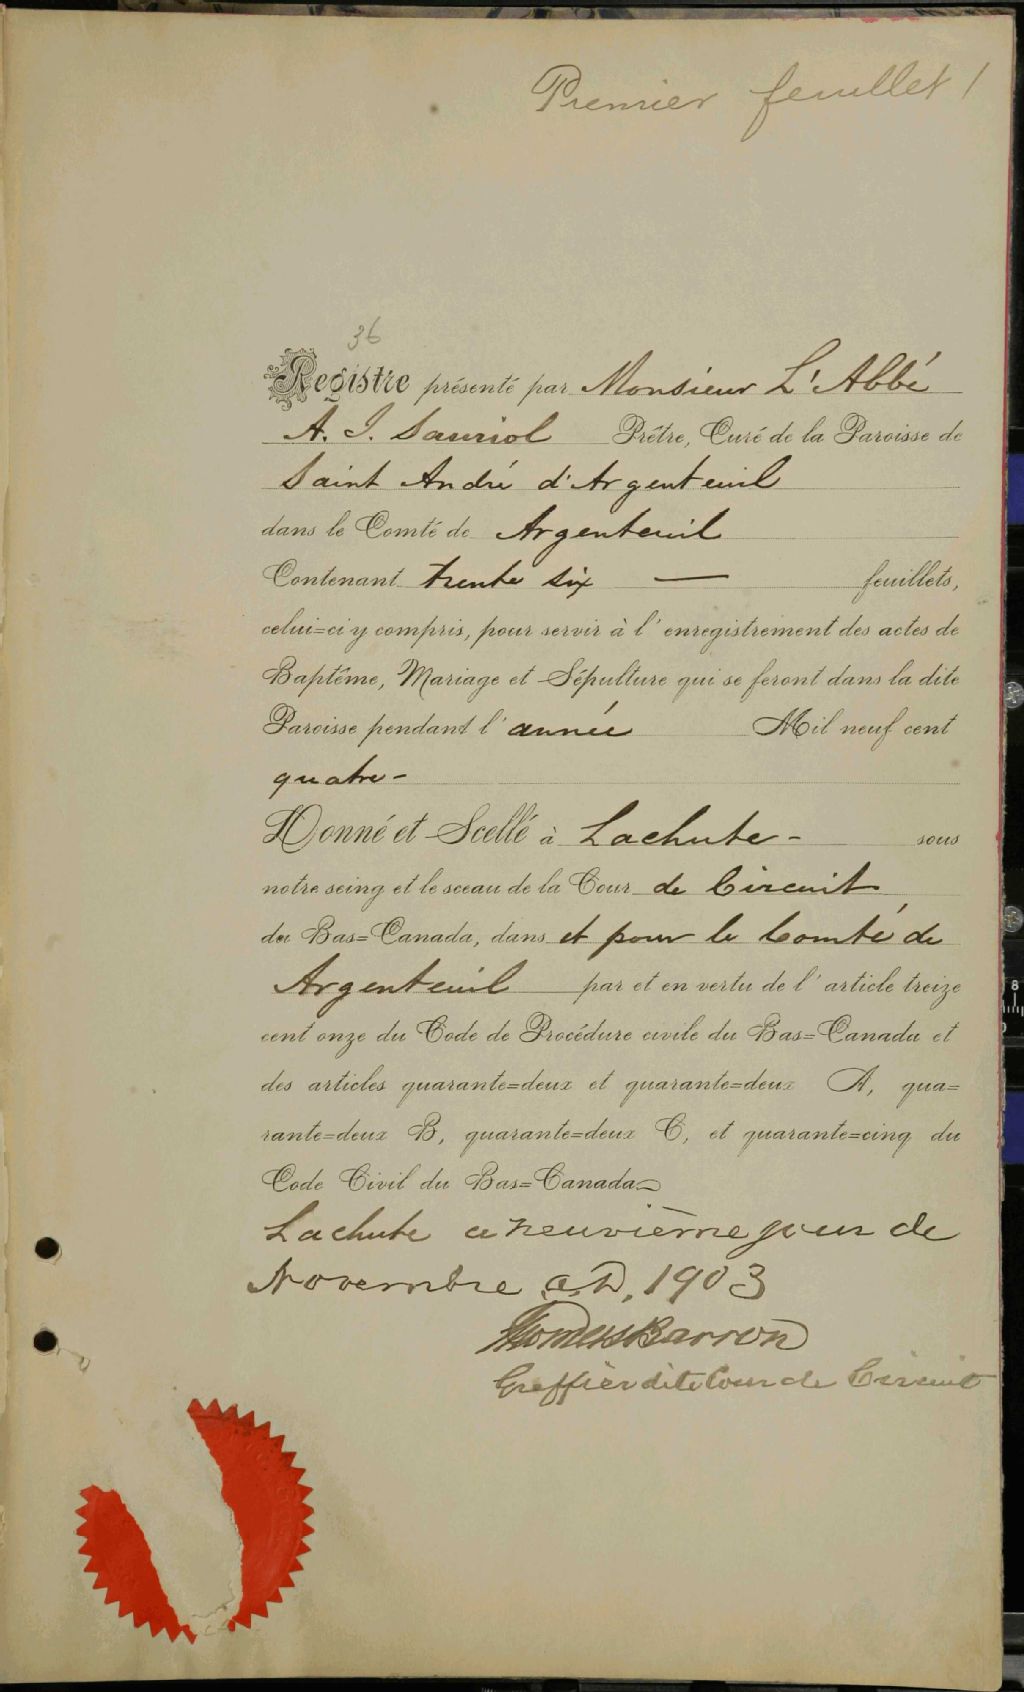 Premier feuillet 1
36
Registre présenté par Monsieur L'Abbé
A. J. Sauriol Prêtre, Curé de la Paroisse de
Saint André d'Argenteuil
dans le Comté de Argenteuil
Contenant trente six — feuillets,
celui=ci y compris, pour servir à l'enregistrement des actes de
Baptême, Mariage et Sépulture qui se feront dans la dite
Paroisse pendant l'année Mil neuf cent
quatre -
Donné et Scellé à Lachute - sous
notre seing et le sceau de la Cour de Circuit
du Bas=Canada, dans et pour le Comté de
Argenteuil par et en vertu de l'article treize
cent onze du Code de Procédure civile du Bas=Canada et
des articles quarante=deux et quarante=deux A, qua=
rante=deux B, quarante=deux C, et quarante=cinq du
Code Civil du Bas=Canada
Lachute ce neuvième jour de
Novembre A.D. 1903
Thomas Barron
Greffier dite Cour de Circuit